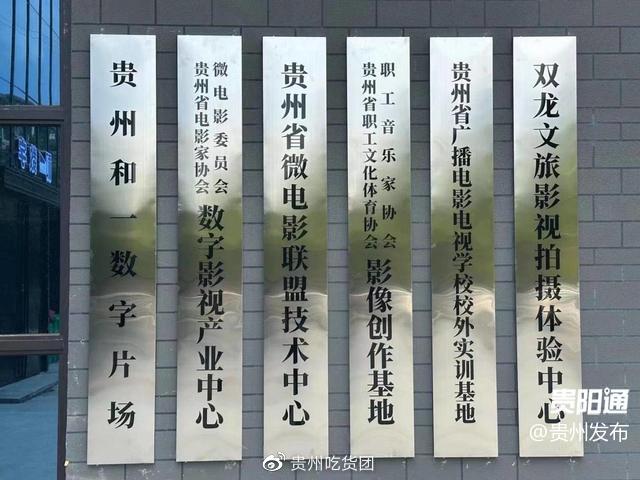 贵州和一数字片场
贵州省电影家协会
微电影委员会
数字影视产业中心
贵州省微电影联盟技术中心
贵州省职工文化体育协会
职工音乐家协会
影像创作基地
贵州省广播电影电视学校校外实训基地
双龙文旅影视拍摄体验中心
贵阳通
@贵州发布
贵州吃货团